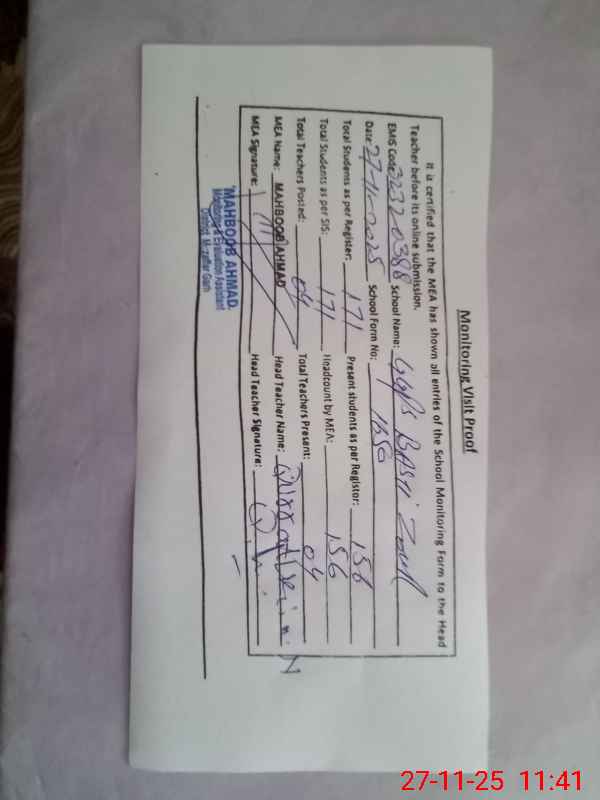 Monitoring Visit Proof
It is certified that the MEA has shown all entries of the School Monitoring Form to the Head
Teacher before its online submission.
EMIS Code: 32320388 School Name: GGPS BASTI
Date: 27-11-2025 School Form No: 1650
Total Students as per Register: 171 Present students as per Registor: 156
Total Students as per SIS: 171 Headcount by MEA: 156
Total Teachers Posted: 04 Total Teachers Present: 04
MEA Name: MAHBOOB AHMAD Head Teacher Name:
MEA Signature: Head Teacher Signature:
MAHBOOB AHMAD
Monitoring & Evaluation Assistant
District Muzaffar Garh
27-11-25 11:41